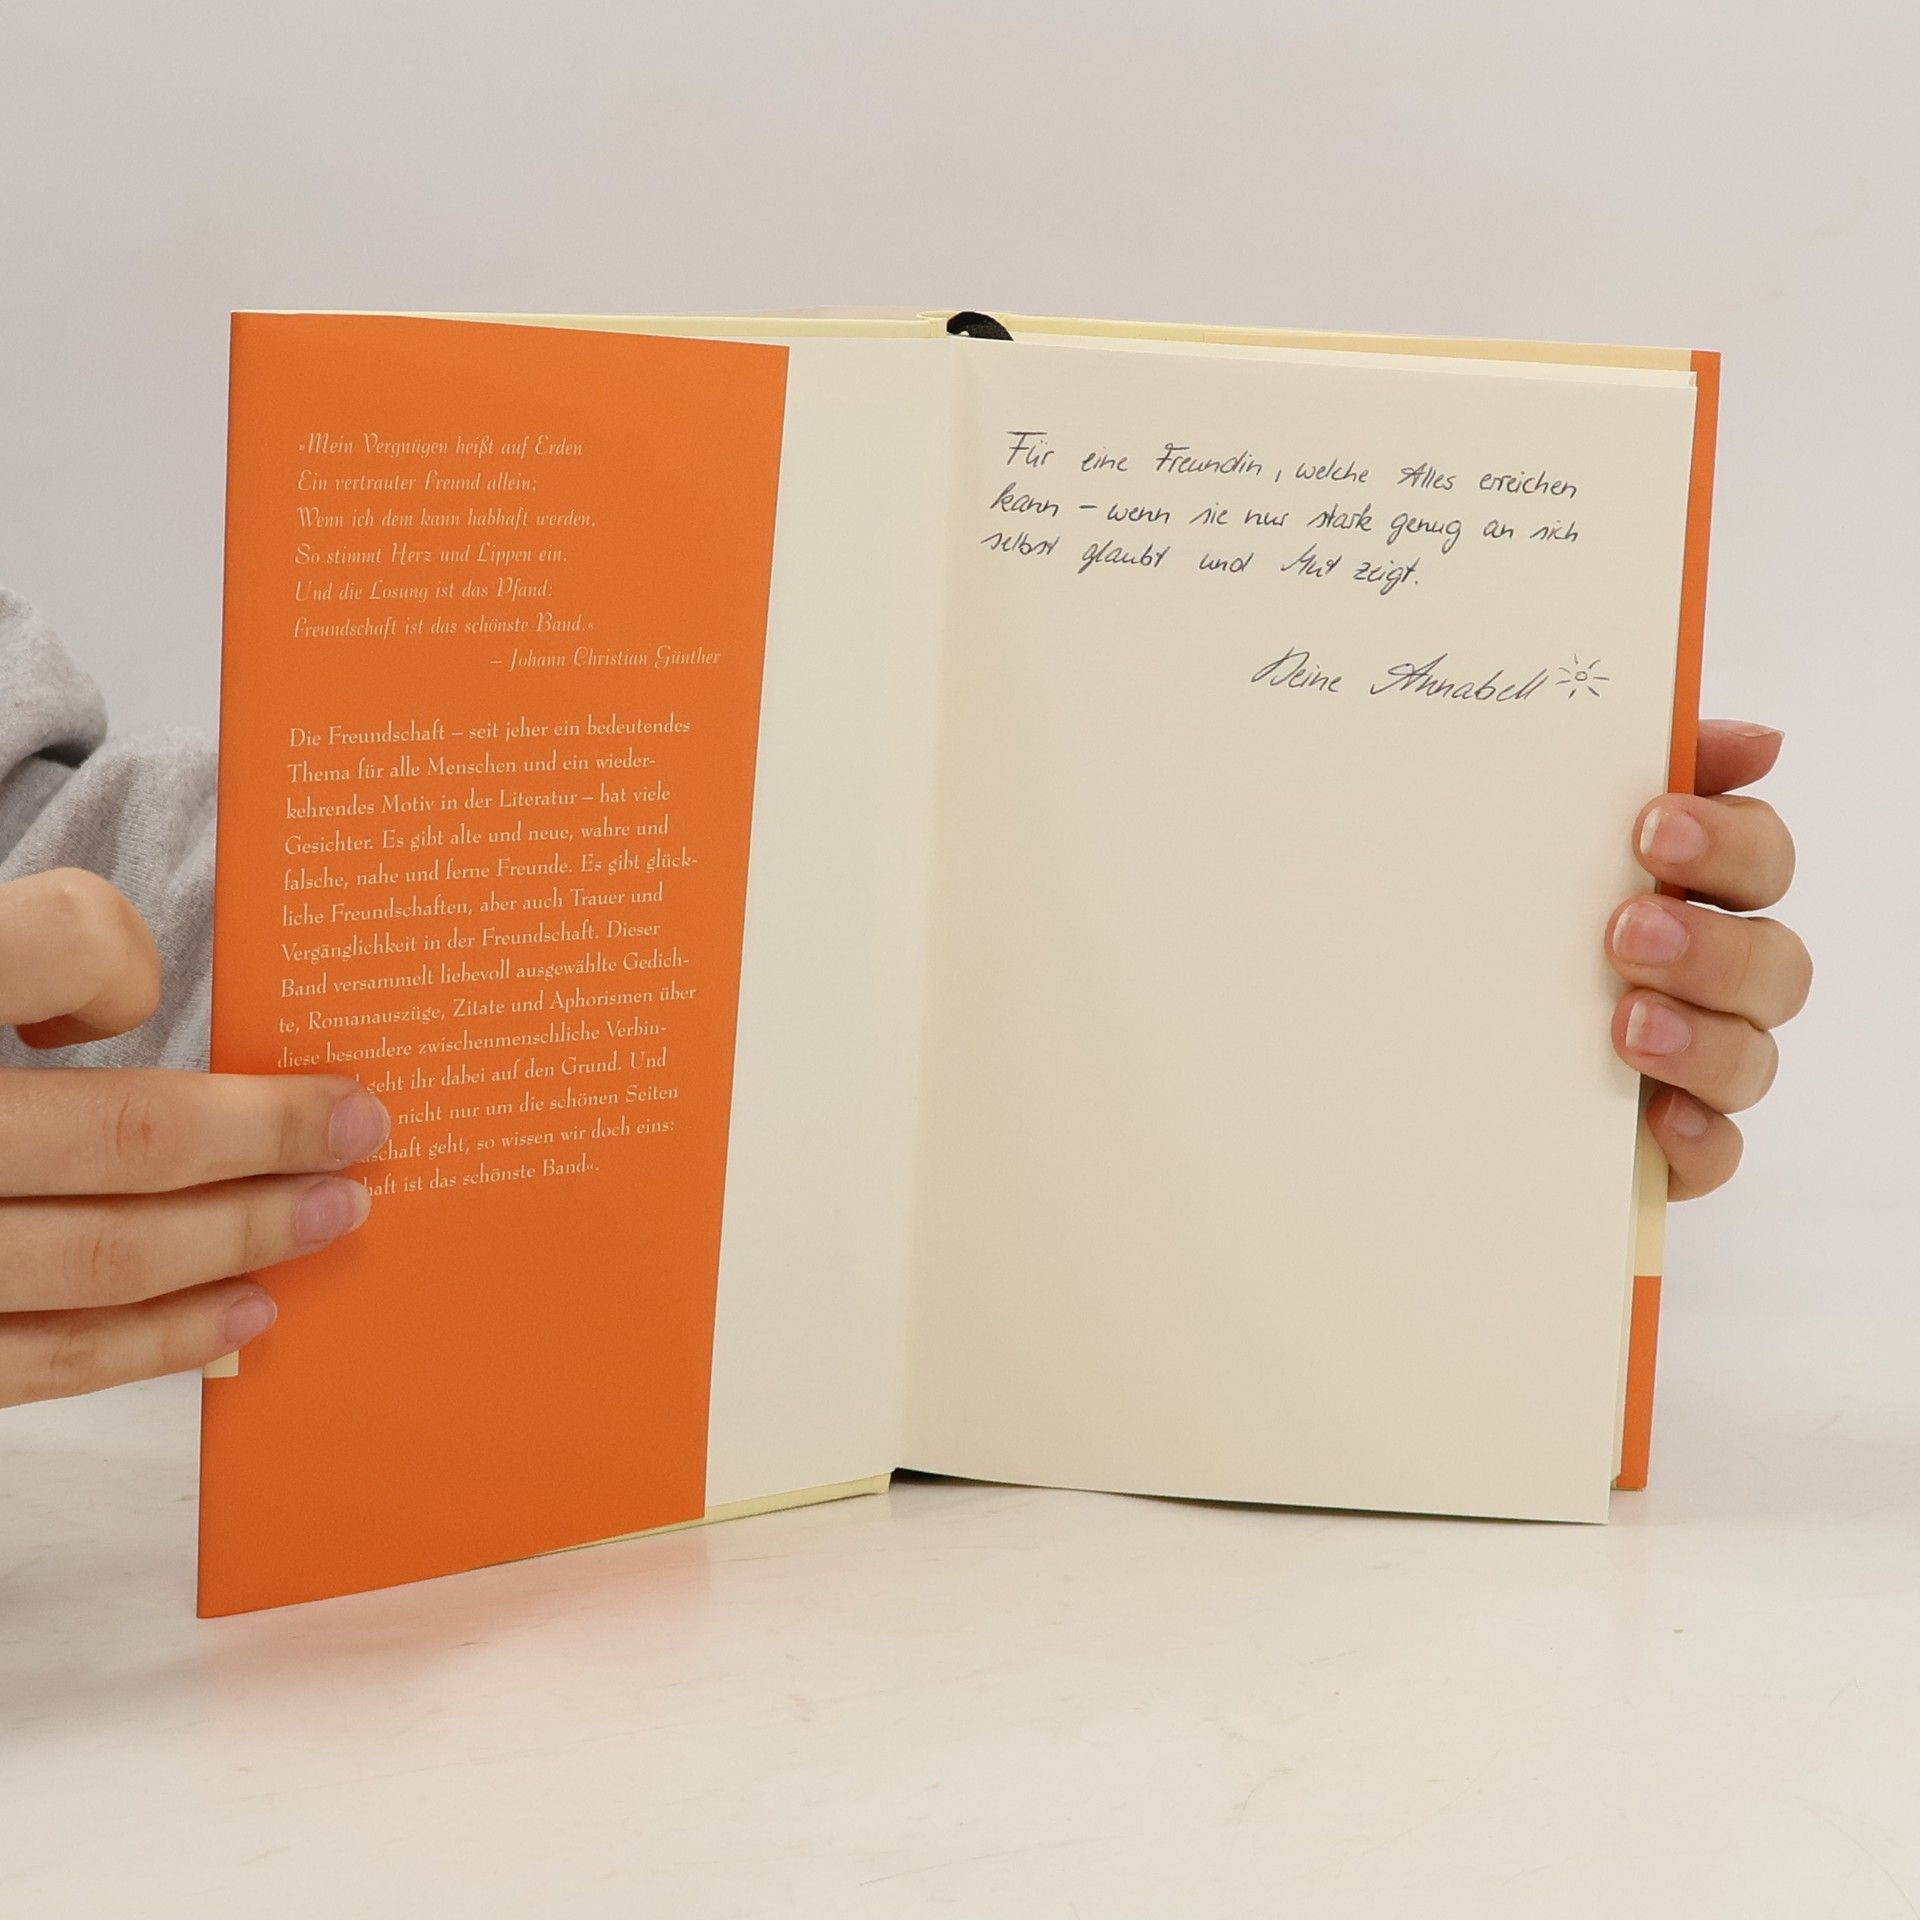 »Mein Vergnügen heißt auf Erden
Ein vertrauter Freund allein;
Wenn ich dem kann habhaft werden,
So stimmt Herz und Lippen ein,
Und die Losung ist das Pfand:
Freundschaft ist das schönste Band.«
– Johann Christian Günther
Die Freundschaft – seit jeher ein bedeutendes
Thema für alle Menschen und ein wieder-
kehrendes Motiv in der Literatur – hat viele
Gesichter. Es gibt alte und neue, wahre und
falsche, nahe und ferne Freunde. Es gibt glück-
liche Freundschaften, aber auch Trauer und
Vergänglichkeit in der Freundschaft. Dieser
Band versammelt liebevoll ausgewählte Gedich-
te, Romanauszüge, Zitate und Aphorismen über
diese besondere zwischenmenschliche Verbin-
geht ihr dabei auf den Grund. Und
nicht nur um die schönen Seiten
schaft geht, so wissen wir doch eins:
haft ist das schönste Band«.
Für eine Freundin, welche Alles erreichen
kann – wenn sie nur stark genug an sich
selbst glaubt und Mut zeigt.
Deine Annabell